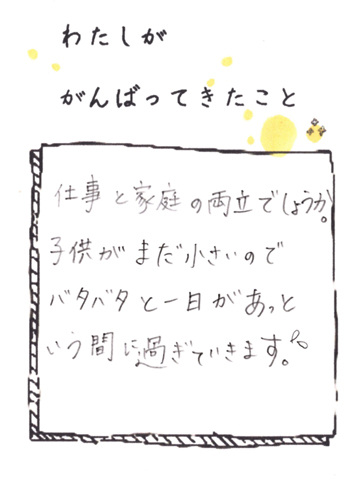 わたしが
がんばってきたこと
仕事と家庭の両立でしょうか。
子供がまだ小さいので
バタバタと一日があっと
いう間に過ぎていきます。